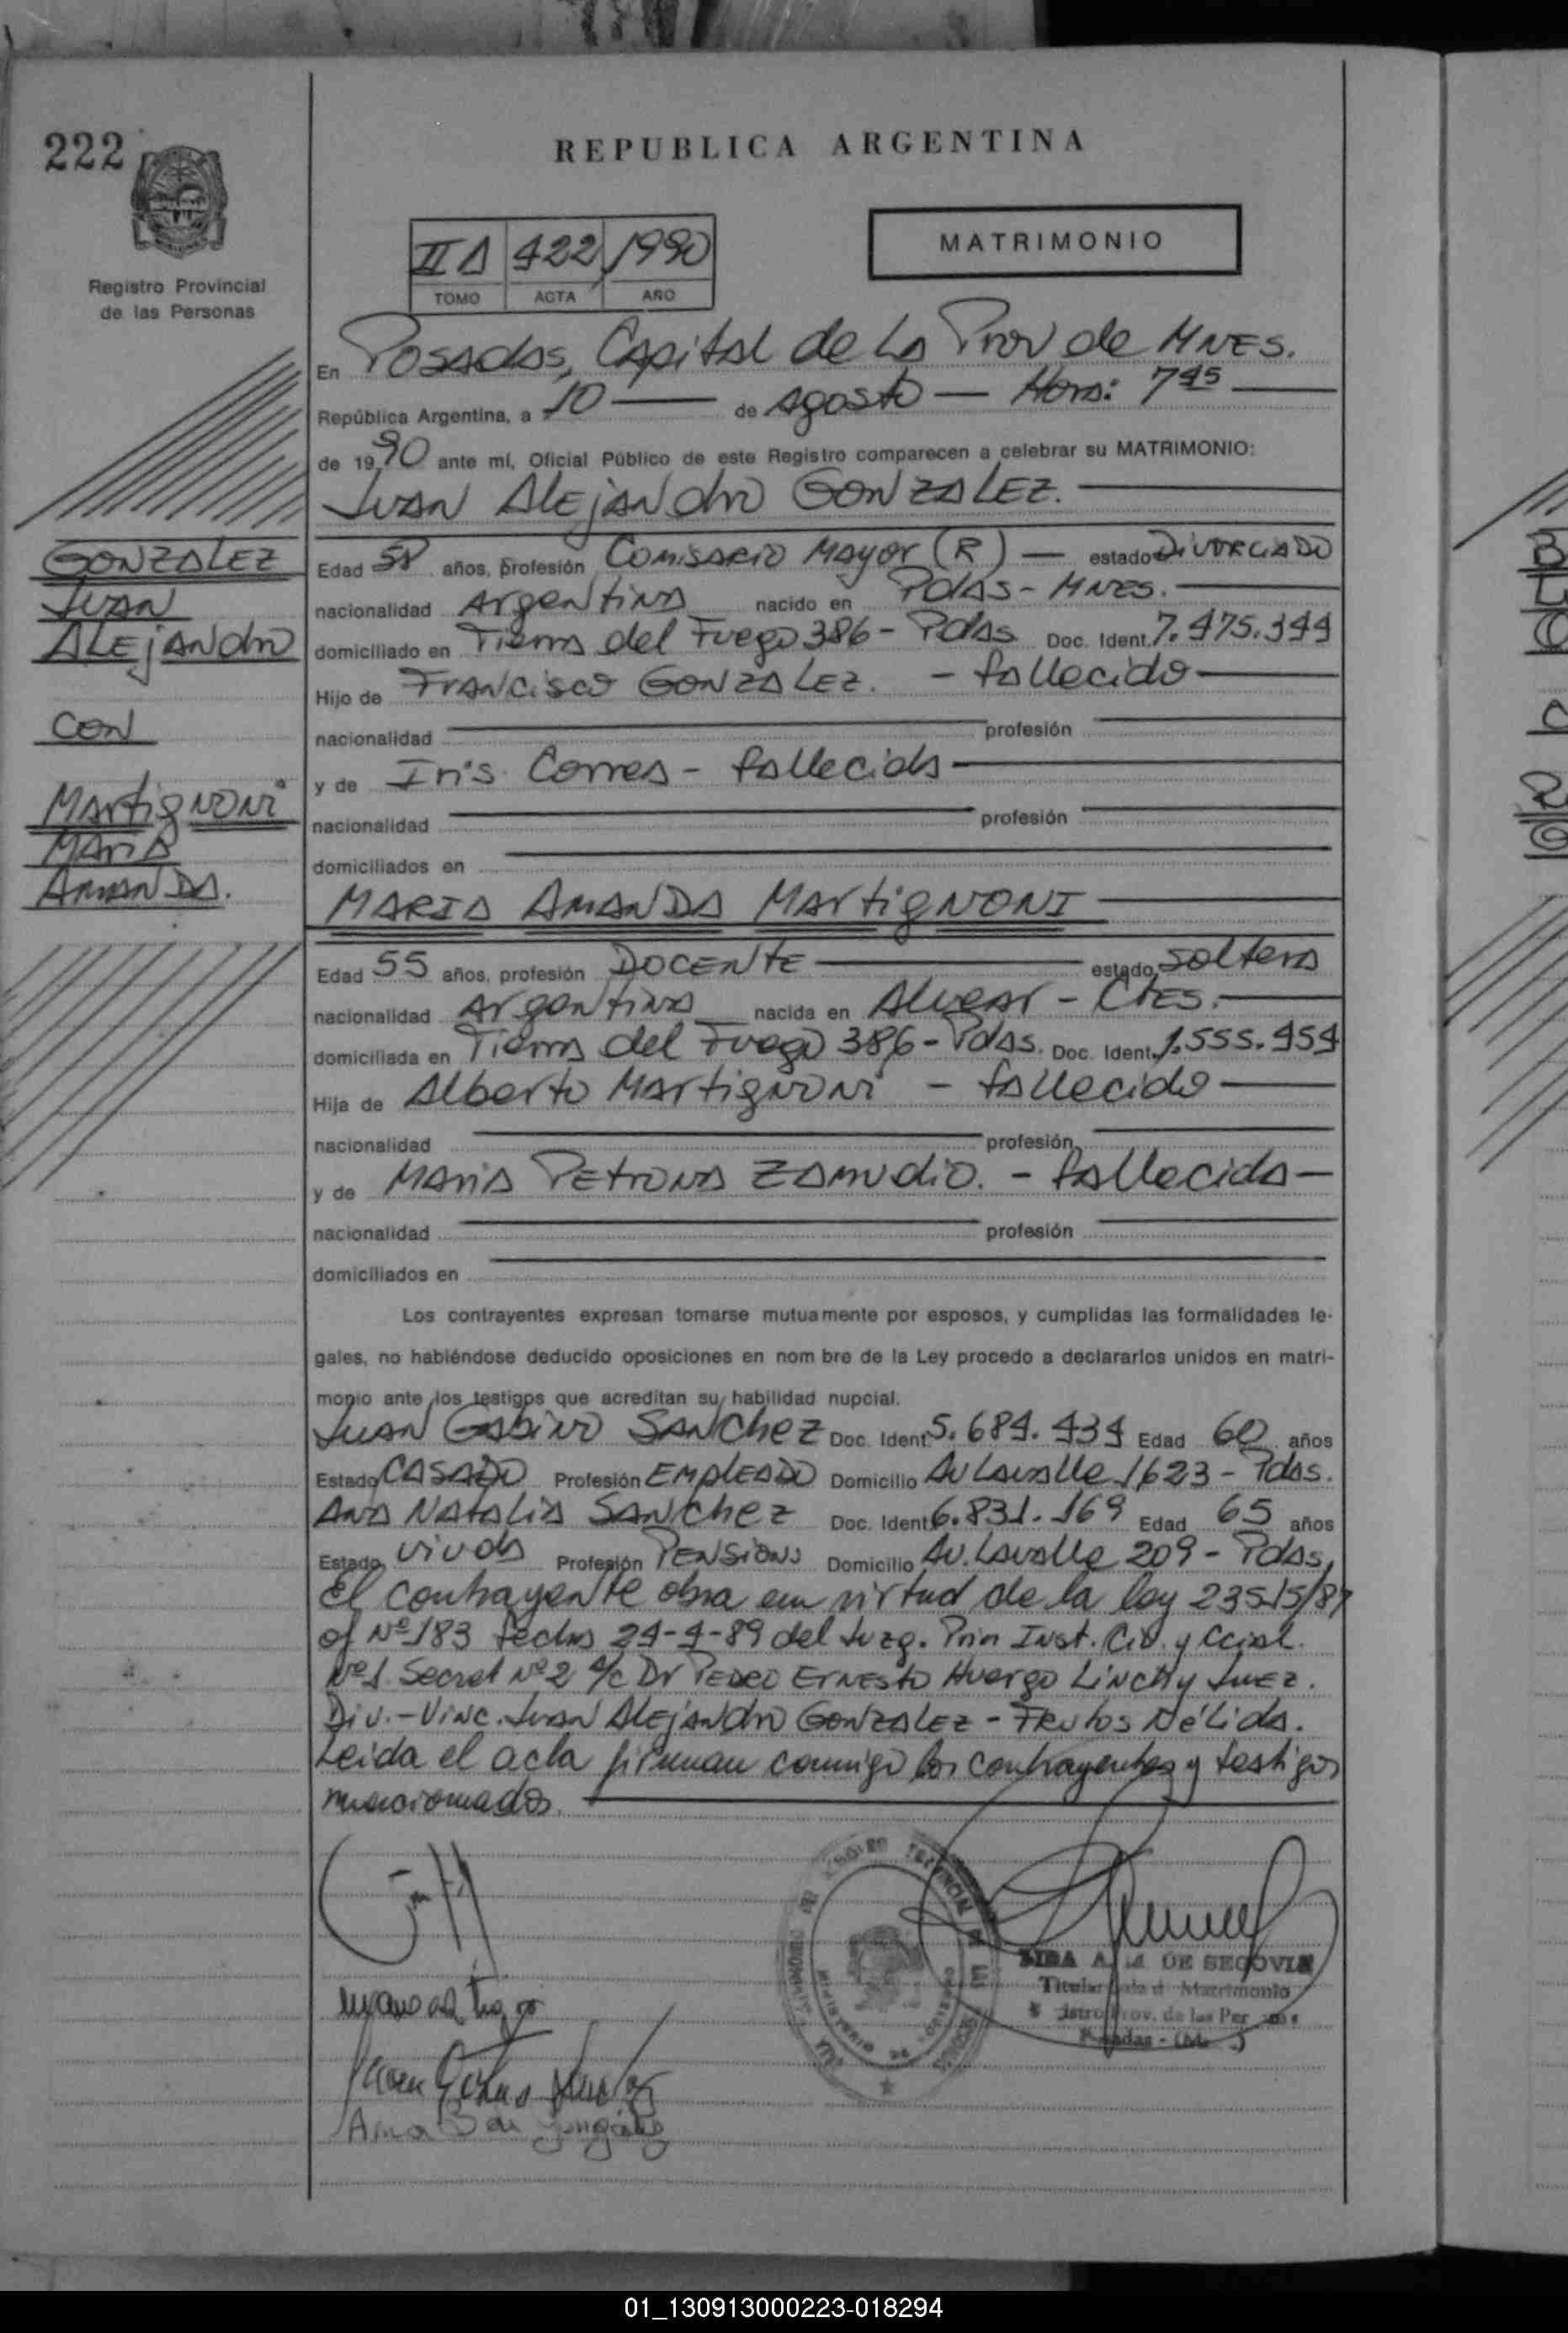 222
REPUBLICA ARGENTINA
II A 422 1990
TOMO ACTA AÑO
MATRIMONIO
Registro Provincial
de las Personas
En Posadas, Capital de La Prov de MNES.
República Argentina, a 10 de Agosto Hora: 7 45
de 1990 ante mí, Oficial Público de este Registro comparecen a celebrar su MATRIMONIO:
JUAN ALEjANdro GONZALEZ.
GONZALEZ
JUAN
ALEjANdro
CON
MArtigNONi
MAriA
AMANDA.
Edad 58 años, profesión COMISARIO MAyor (R) estado DIVORCIADO
nacionalidad ArgentinA nacido en PdAS - MNES.
domiciliado en Tierra del Fuego 386 - PdAs Doc. Ident. 7.475.344
Hijo de FRANCisco GONZALEZ. - fallecido
nacionalidad profesión
y de Iris Correa - fallecida
nacionalidad profesión
domiciliados en
MARIA AMANDA MArtigNONI
Edad 55 años, profesión DOCENTE estado soltera
nacionalidad Argentina nacida en Alvear - CTES.
domiciliada en Tierra del Fuego 386 - PdAs. Doc. Ident. 1.555.454
Hija de Alberto MArtigNONi - fallecido
nacionalidad profesión
y de MAriA PEtroNA ZAMUdio. - fallecida
nacionalidad profesión
domiciliados en
Los contrayentes expresan tomarse mutuamente por esposos, y cumplidas las formalidades le-
gales, no habiéndose deducido oposiciones en nom bre de la Ley procedo a declararlos unidos en matri-
monio ante los testigos que acreditan su habilidad nupcial.
JUAN GAbiNO SANChez Doc. Ident. 5.684.434 Edad 60 años
Estado CASADO Profesión EMPLEADO Domicilio Av Lavalle 1623 - Pdas.
ANA NAtAliA SANChez Doc. Ident. 6.831.169 Edad 65 años
Estado viuda Profesión PENSiONs Domicilio Av. Lavalle 209 - PdAs,
El contrayente obra en virtud de la ley 23515/87
of Nº 183 fecha 24-4-89 del Juzg. Prim INst. Civ. y Ccial.
Nº1 Secret Nº 2 a/c Dr PEDRO ErNESto Huergo LiNCh y JUEZ.
Div.-ViNc. JUAN ALEjANdro GONZALEZ - FRutos NéLida.
Leida el acta firman conmigo los contrayentes y testigos
mencionados.
DE SEGOVIA
Titular Matrimonio
Prov. de las Per
01_130913000223-018294